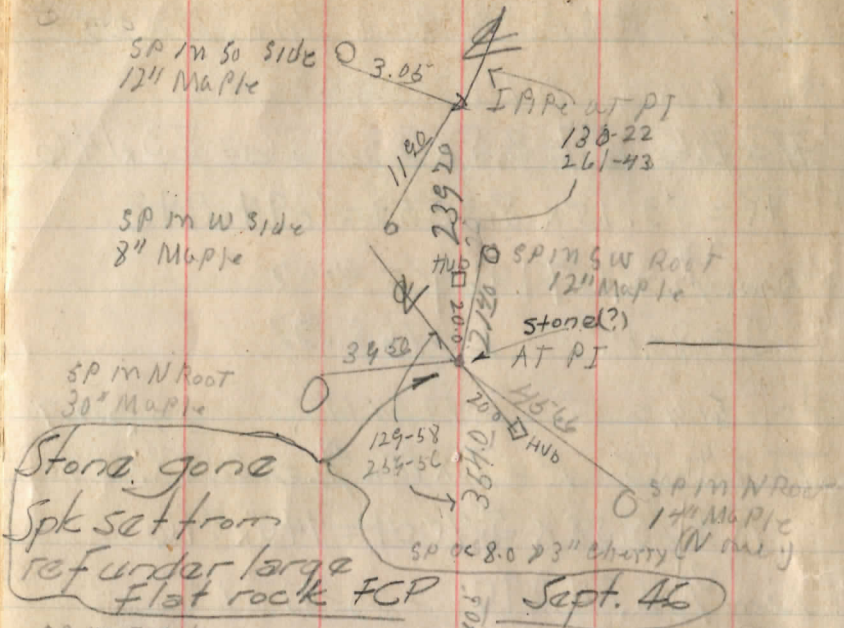 SP in So Side
12" Maple
3.05
I Pipe at PI
130-22
261-43
11 90
239 20
SP in W Side
8" Maple
Hub
SP in SW Root
12" Maple
20.0
21 40
Stone(?)
AT PI
39 50
SP in N Root
30" Maple
20.0
45 66
Hub
129-58
354.0
SP in N Root
14" Maple
Stone gone
Spk set from
ref under large
Flat rock FCP
SP 8.0 3" Cherry
Sept. 46